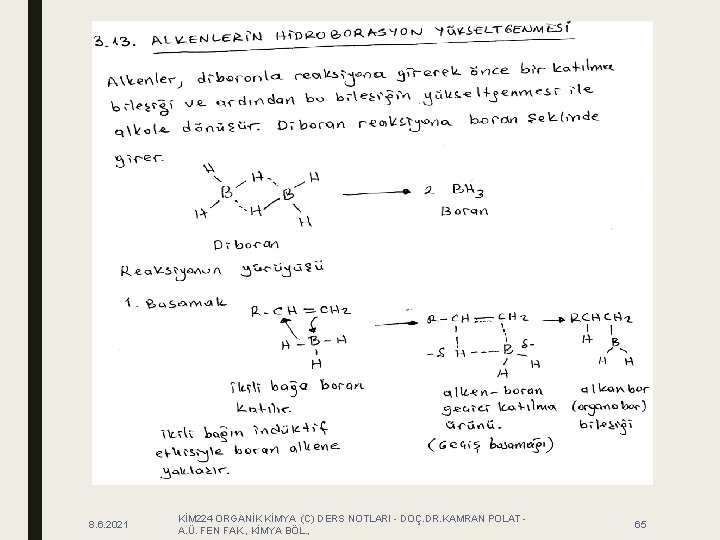 3.13. ALKENLERİN HİDROBORASYON YÜKSELTGENMESİ
Alkenler, diboranla reaksiyona girerek önce bir katılma
bileşiği ve ardından bu bileşiğin yükseltgenmesi ile
alkole dönüşür. Diboran reaksiyona boran şeklinde
girer.
H H H
B B
H H H
2 BH3
Diboran
Boran
Reaksiyonun yürüyüşü
1. Basamak
R-CH=CH2
H-B-H
H
R-CH=CH2
-δ H---B δ-
H H
RCHCH2
H B
H H
ikili bağa boran
katılır.
ikili bağın indüktif
etkisiyle boran alkene
yaklaşır.
alken-boran
geçici katılma
ürünü.
(Geçiş basamağı)
alkanbor
(organobor)
bileşiği
8.6.2021
KİM224 ORGANİK KİMYA (C) DERS NOTLARI - DOÇ.DR.KAMRAN POLAT -
A.Ü. FEN FAK., KİMYA BÖL.,
65